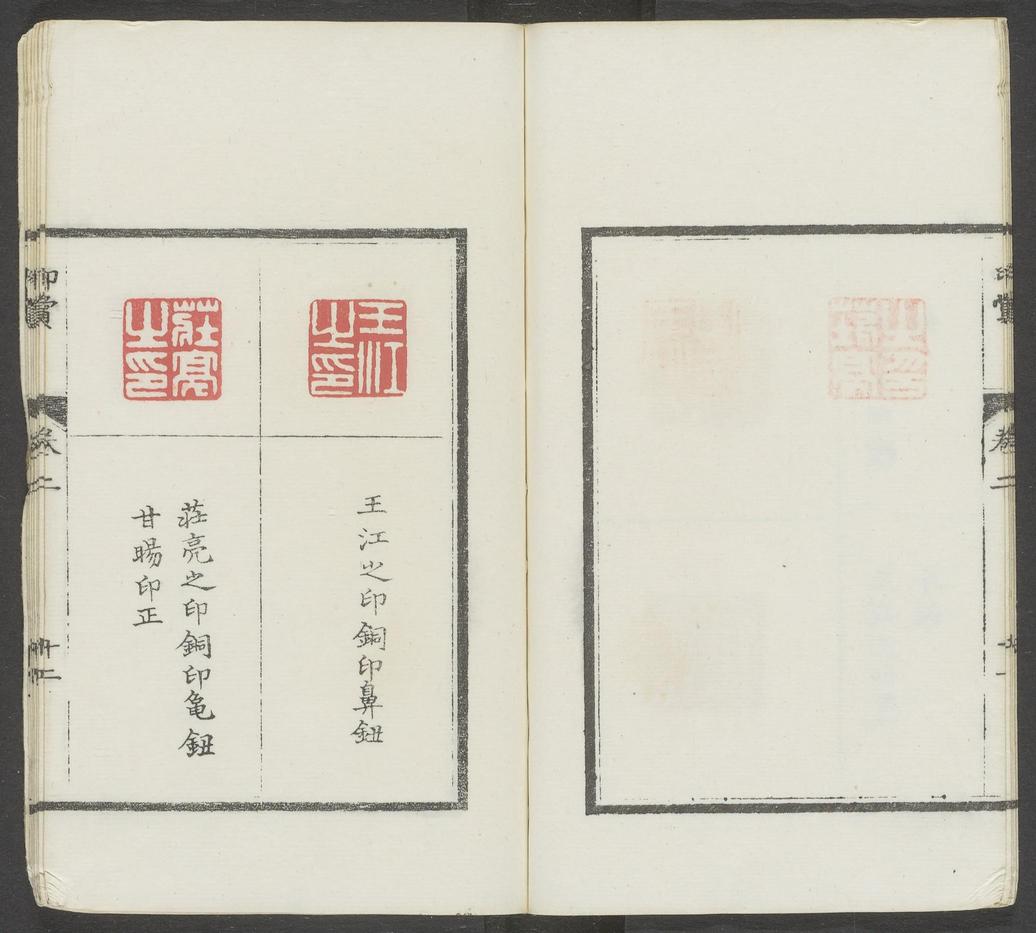 王江之印
王江之印銅印鼻鈕
莊亮之印
莊亮之印銅印亀鈕
甘暘印正
賞
卷二
卷二